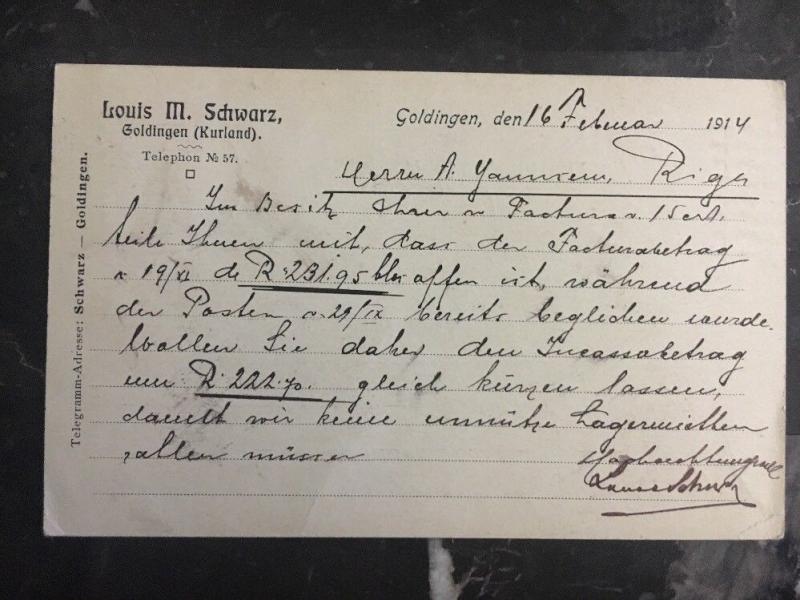 Louis M. Schwarz,
Goldingen (Kurland).
Telephon № 57.
Telegramm-Adresse: Schwarz — Goldingen.
Goldingen, den 16 Februar 1914
Herrn A. Riga
Im Besitz Ihrer v Factura v. 15 crt.
teile Ihnen mit, dass der Facturabetrag
v 19/XI de R. 231.95 offen ist, während
der Posten v. 29/IX bereits beglichen wurde.
Wollen Sie daher den Incassobetrag
um R. 222.70. gleich kürzen lassen,
damit wir keine unnütze Lagermieten
zallen müssen
Hochachtungsvoll
Louis Schwarz